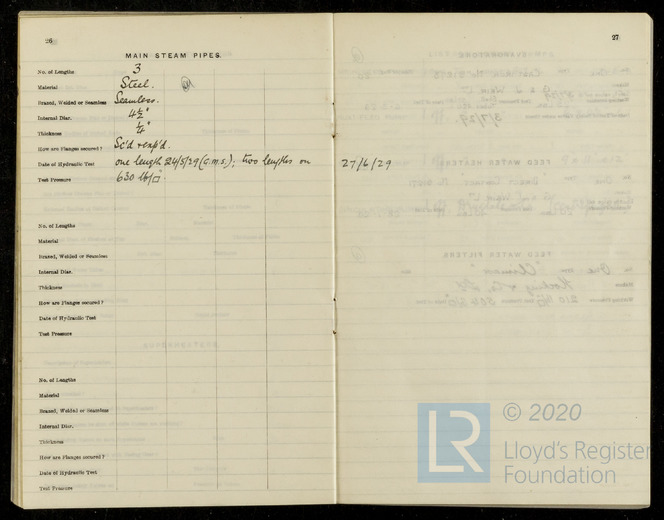 26
MAIN STEAM PIPES.
No. of Lengths 3
Material Steel.
Brazed, Welded or Seamless Seamless.
Internal Diar. 4½"
Thickness ¼"
How are Flanges secured? Sc'd & exp'd.
Date of Hydraulic Test one length 24/5/29 (C.M.S.); two lengths on 27/6/29
Test Pressure 630 lb/□".
No. of Lengths
Material
Brazed, Welded or Seamless
Internal Diar.
Thickness
How are Flanges secured?
Date of Hydraulic Test
Test Pressure
No. of Lengths
Material
Brazed, Welded or Seamless
Internal Diar.
Thickness
How are Flanges secured?
Date of Hydraulic Test
Test Pressure
27
LR
© 2020
Lloyd's Register
Foundation